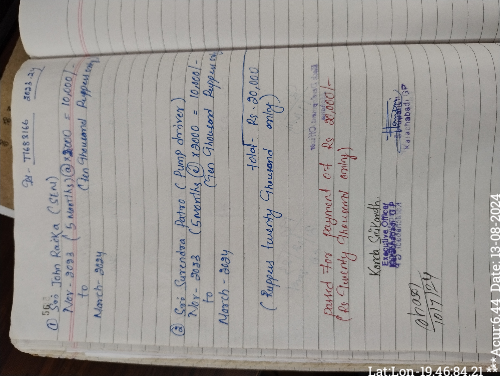 Id - 7168166 2023-24
① Sri John Raika (SEM)
Nov - 2023 (5 months) @ x2000 = 10,000/-
to (Ten thousand Ruppees only)
March - 2024
② Sri Surendra Patro (Pump driver)
Nov - 2023 (5 months @ x2000 = 10,000/-
to (Ten thousand Ruppees
March - 2024
total - Rs - 20,000
(Ruppees twenty thousand only)
passed for payment of Rs 20,000/-
(Rs Twenty thousand only)
Executive Officer
10/7/24
Lat:Lon-19.46:84.21
**Acur:6.44 Date: 13-08-2024